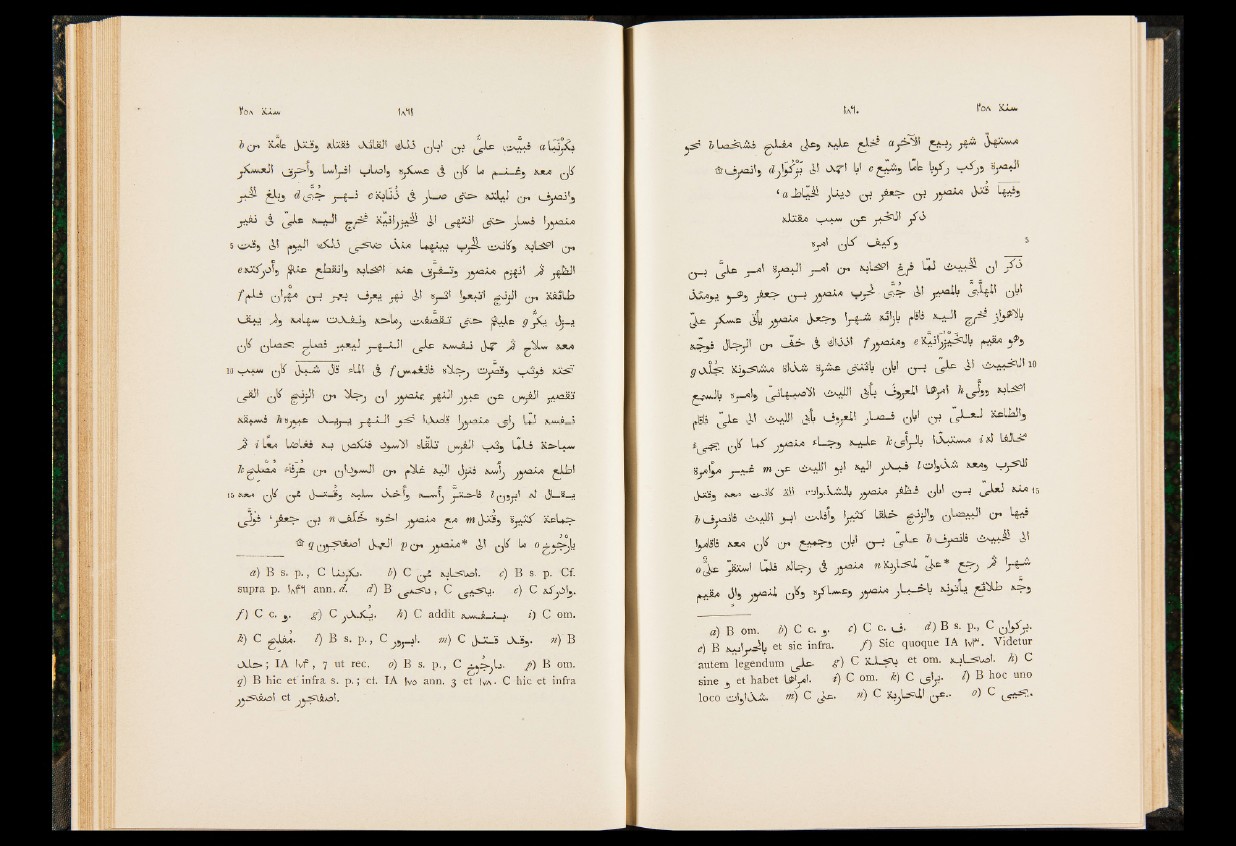 سنة ٢٥٨ ١٨٦٠
مستهلّ شهر ربيع الآخر a فخلع عليه وعلى مفلح b فشخصا نحو
البصرة وركب ركوبا عامّا وشيّع c ابا احمد الى بَزْكُوَار d وانصرف ۞
وفيها قُتل منصور بن جعفر بن دينار الخيّاط a،
ذكر الخبر عن سبب مقتله
5 وكيف كان امره
ذُكر ان الخبيث لمّا فرغ اصحابه من امر البصرة امر علىّ بن
ابان المهلّبىّ بالمصير الى جُبَّى لحرب منصور بن جعفر وهو يومئذ
بالاهواز فخرج اليه فاقام بازائه شهرا وجعل منصور يأتى عسكر علىّ
وهو مقيم بالخيزرانيّة e ومنصور f اذذاك فى خفّ من الرجال فوجّه
10 الخبيث الى علىّ بن ابان باثنتى عشرة شذاة مشحونة بجُلْد g
اصحابه وولّى h امرها المعروف بأبى الليث الاصبهانىّ وامره بالسمع
والطاعة لعلىّ بن ابان فصار المعروف بأبى الليث الى علىّ فاقام
مخالفا له i مستبدّا بالرأى k عليه وجاء منصور كما كان يجىء
للحرب ومعه شذوات l فبدر اليه ابو الليث عن m غير مؤامرة
15 منه لعلىّ بن ابان فظفر منصور بالشذوات التى كانت معه وقتل
فيها من البيضان والزنج خلقا كثيرا وافلت ابو الليث فانصرف b
الى الخبيث فانصرف b علىّ بن ابان وجميع من كان معه فاقاموا
شهرا ثم رجع *علىّ لمحاربة n منصور فى رجاله فلما استقرّ علىّ o
وجّه طلائع يأتونه باخبار منصور وعساكره وكان لمنصور والٍ مقيم
a) B om. b) C c. و. c) C c. ف. d) B s. p., C
e) B et sic infra. f) Sic quoque IA ١٧٣. Videtur
autem legendum على g) C et om. اصحابه. h) C
sine و et habet امراها. i) C om. k) C برى. l) B hoc uno
loco شذاوات. m) C على. n) C عن المحاربة. o) C يحيى.
سنة ٢٥٨ ١٨٦١
بكَرْنَبَا a فبيّت علىّ بن ابان ذلك القائد فقتله وقتل عامّة من b
كان معه وغنم ما كان فى عسكره واصاب افراسا واحرق العسكر
وانصرف من ليلته حتى صار فى ذُنَابة c نهر جُبَّى d وبلغ الخبر
منصورا فسار حتى انتهى الى الخيزرانيّة فخرج اليه علىّ فى نفير
5 من اصحابه وكانت الحرب بينهما منذ ضحى ذلك اليوم الى وقت
الظهر ثم انهزم منصور وتفرّق عنه اصحابه وانقطع عنهم وادركته e
طائفة من الزنج اتبعوا اثره الى نهر يعرف بعمر بن مهران فلم f
يزل يكرّ g عليهم حتى تقصّفت رماحه ونفدت سهامه ولم يبق
معه سلاح ثم حمل نفسه على النهر ليعبر فصاح بحصان كان
10 تحته فوثب وقصّرت رجلاه فانغمس f فى الماء قال شبل كان سبب
تقصير الفرس عن عبور النهر بمنصور ان رجلا من الزنج كان القى
نفسه لمّا رأى منصورا قاصدا نحو النهر يريد عبوره h فسبقه
سباحة فلمّا وثب الفرس تلقّاه الاسود فنكص به فغاصا معا i ثم
اطلع منصور رأسه فنزل اليه غلام من السودان من عُرَفاء مُصْلح k
15 يقال له ابرون l فاحتزّ رأسه واخذ سلبه وقتل ممّن كان معه
جماعة كثيرة وقتل m مع منصور اخوه خَلَف n بن جعفر، فولّى
يارْجُوخ o ما كان الى *منصور من p العمل اصغجون q ۞
a) B s. p., C b) C ممن اصحابه. c) B s. p. Cf.
supra p. ١٨٣٦ ann. d. d) B , C e) C وادركه.
f) C c. و. g) C h) C addit بنفسه. i) C om.
k) C مفلح. l) B s. p., C m) C قتل وقد. n) B
خلد; IA ١٧٤, 7 ut rec. o) B s. p., C p) B om.
q) B hic et infra s. p.; cf. IA ١٧٥ ann. 3 et ١٧٨. C hic et infra
اصغجور et اصغجور.